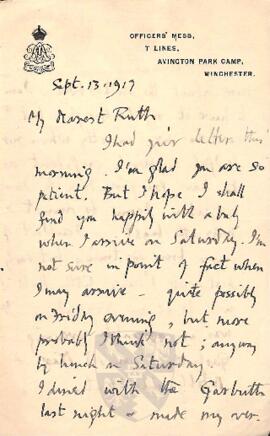 OFFICERS' MESS,
T LINES,
AVINGTON PARK CAMP,
WINCHESTER.
Sept. 13. 1917
My Dearest Ruth
I had your letter this
morning. I'm glad you are so
patient. But I hope I shall
find you happily with a baby
when I arrive on Saturday. I'm
not sure in point of fact when
I may arrive - quite possibly
on Friday evening, but more
probably I think not; anyway
by lunch on Saturday.
I dined with the
last night & made my